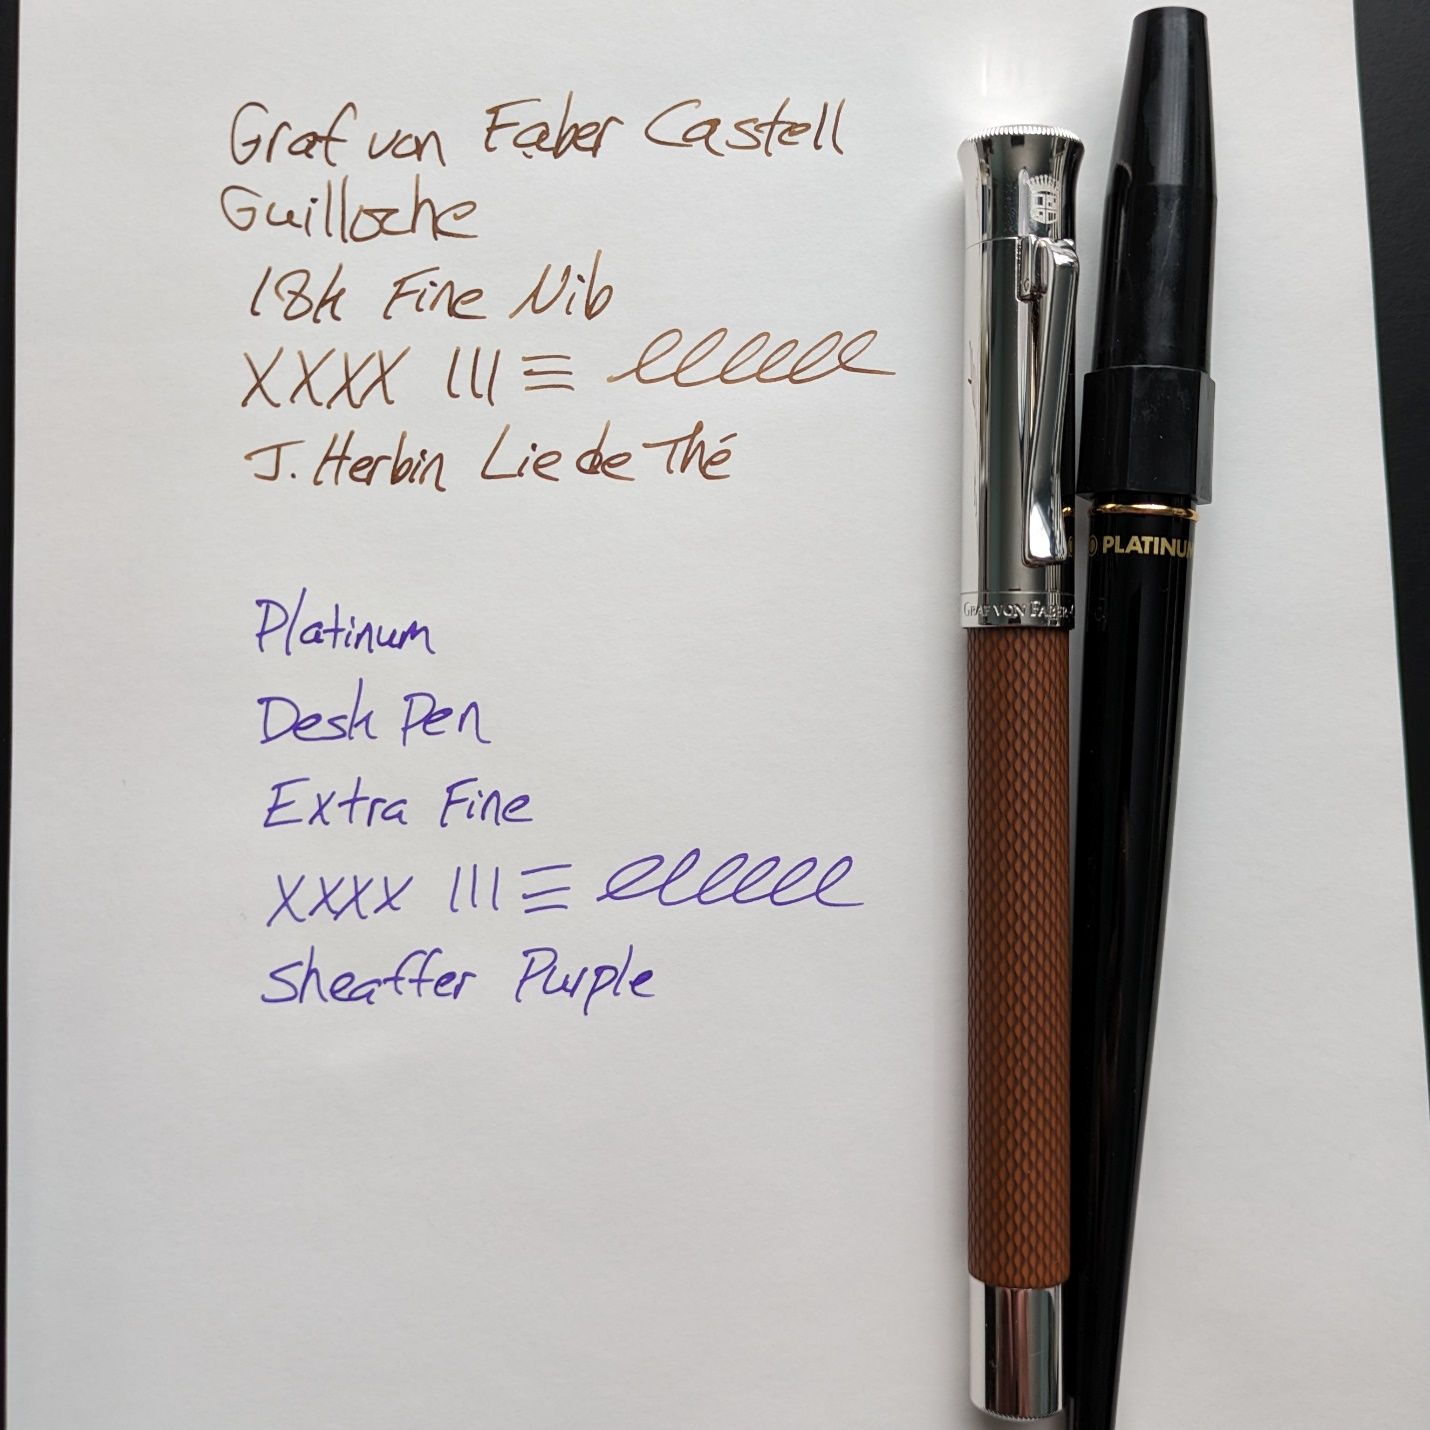 Graf von Faber Castell
Guilloche
18k Fine Nib
XXXX ||| ≡ eeeeee
J. Herbin Lie de Thé
Platinum
Desk Pen
Extra Fine
XXXX ||| ≡ eeeeee
Sheaffer Purple
GRAF VON FABER-
PLATINUM